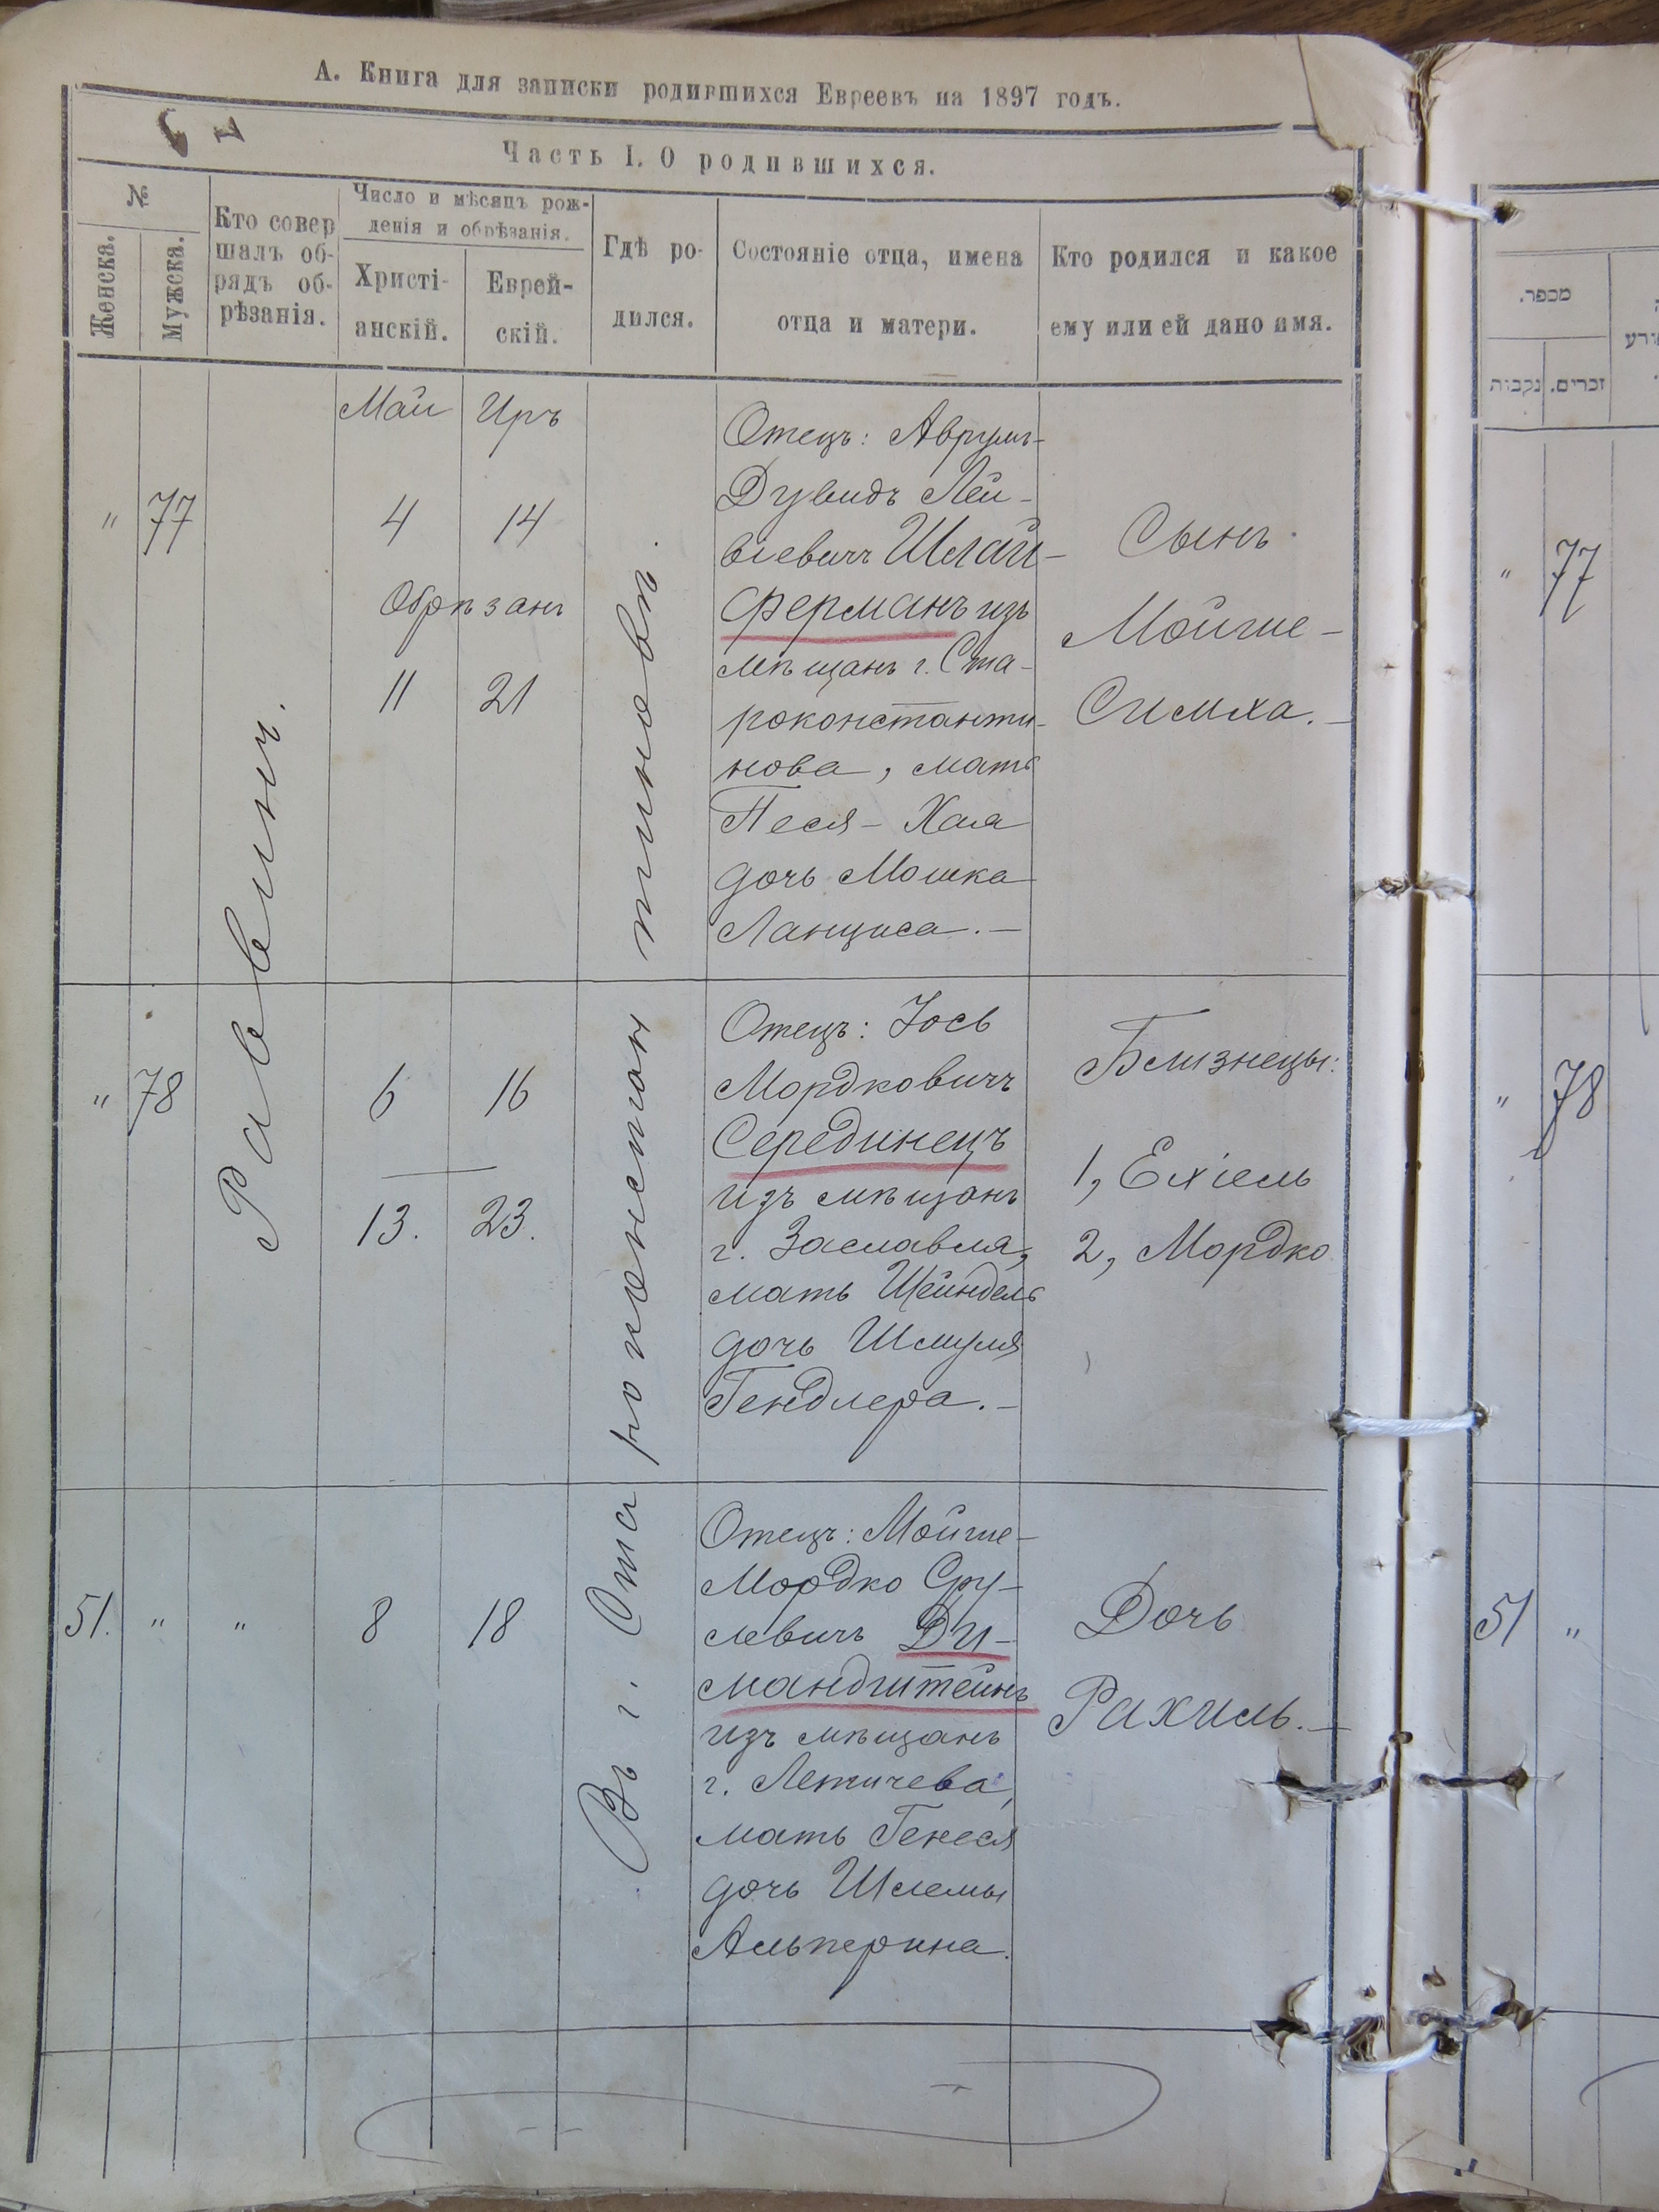 А. Книга для записки родившихся Евреевъ на 1897 годъ.
Часть I. О родившихся.
№
Женска.
Мужска.
Кто совер
шалъ об-
рядъ об-
рѣзанія.
Число и мѣсяцъ рож-
денія и обрѣзанія.
Христі-
анскій.
Еврей-
скій.
Гдѣ ро-
дился.
Состояніе отца, имена
отца и матери.
Кто родился и какое
ему или ей дано имя.
Равинъ.
Въ г. Староконстантиновѣ.
Май Иръ
" 77
4 14
Обрѣзанъ
11 21
Отецъ: Аврумъ-
Дувидъ Лей-
віевичъ Шлай-
ферманъ изъ
мѣщанъ г. Ста-
роконстанти-
нова, мать
Песя-Хая
дочь Мошка
Ланциса.-
Сынъ
Мойше-
Симха.-
" 78
6 16
13. 23.
Отецъ: Іось
Мордковичъ
Серединецъ
изъ мѣщанъ
г. Заславля,
мать Шейндель
дочь Шмуля
Гендлера.-
Близнецы:
1, Ехіель
2, Мордко
51. " "
8 18
Отецъ: Мойше-
Мордко Сру-
левичъ Ди-
мандштейнъ
изъ мѣщанъ
г. Летичева,
мать Генеся
дочь Шлемы
Альперина.
Дочь
Рахиль.-
מכפר.
נקבות
זכרים.
" 77
" 78
51 "